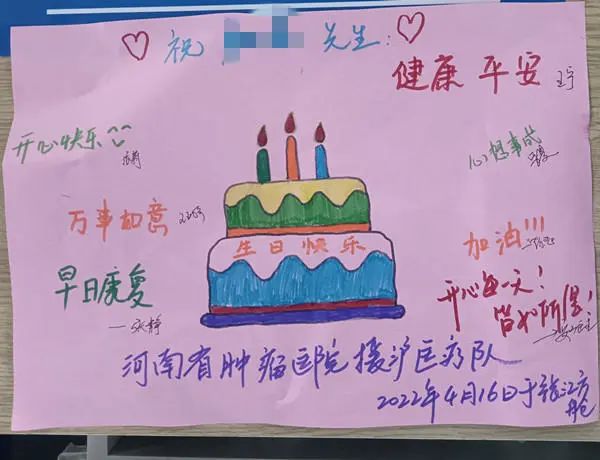 祝 先生:
健康 平安
王宁
开心快乐
心想事成
万事如意
加油!!!
生日快乐
早日康复
—张静
开心每一天!
皆如所愿!
河南省肿瘤医院援沪医疗队
2022年4月16日于张江方舱